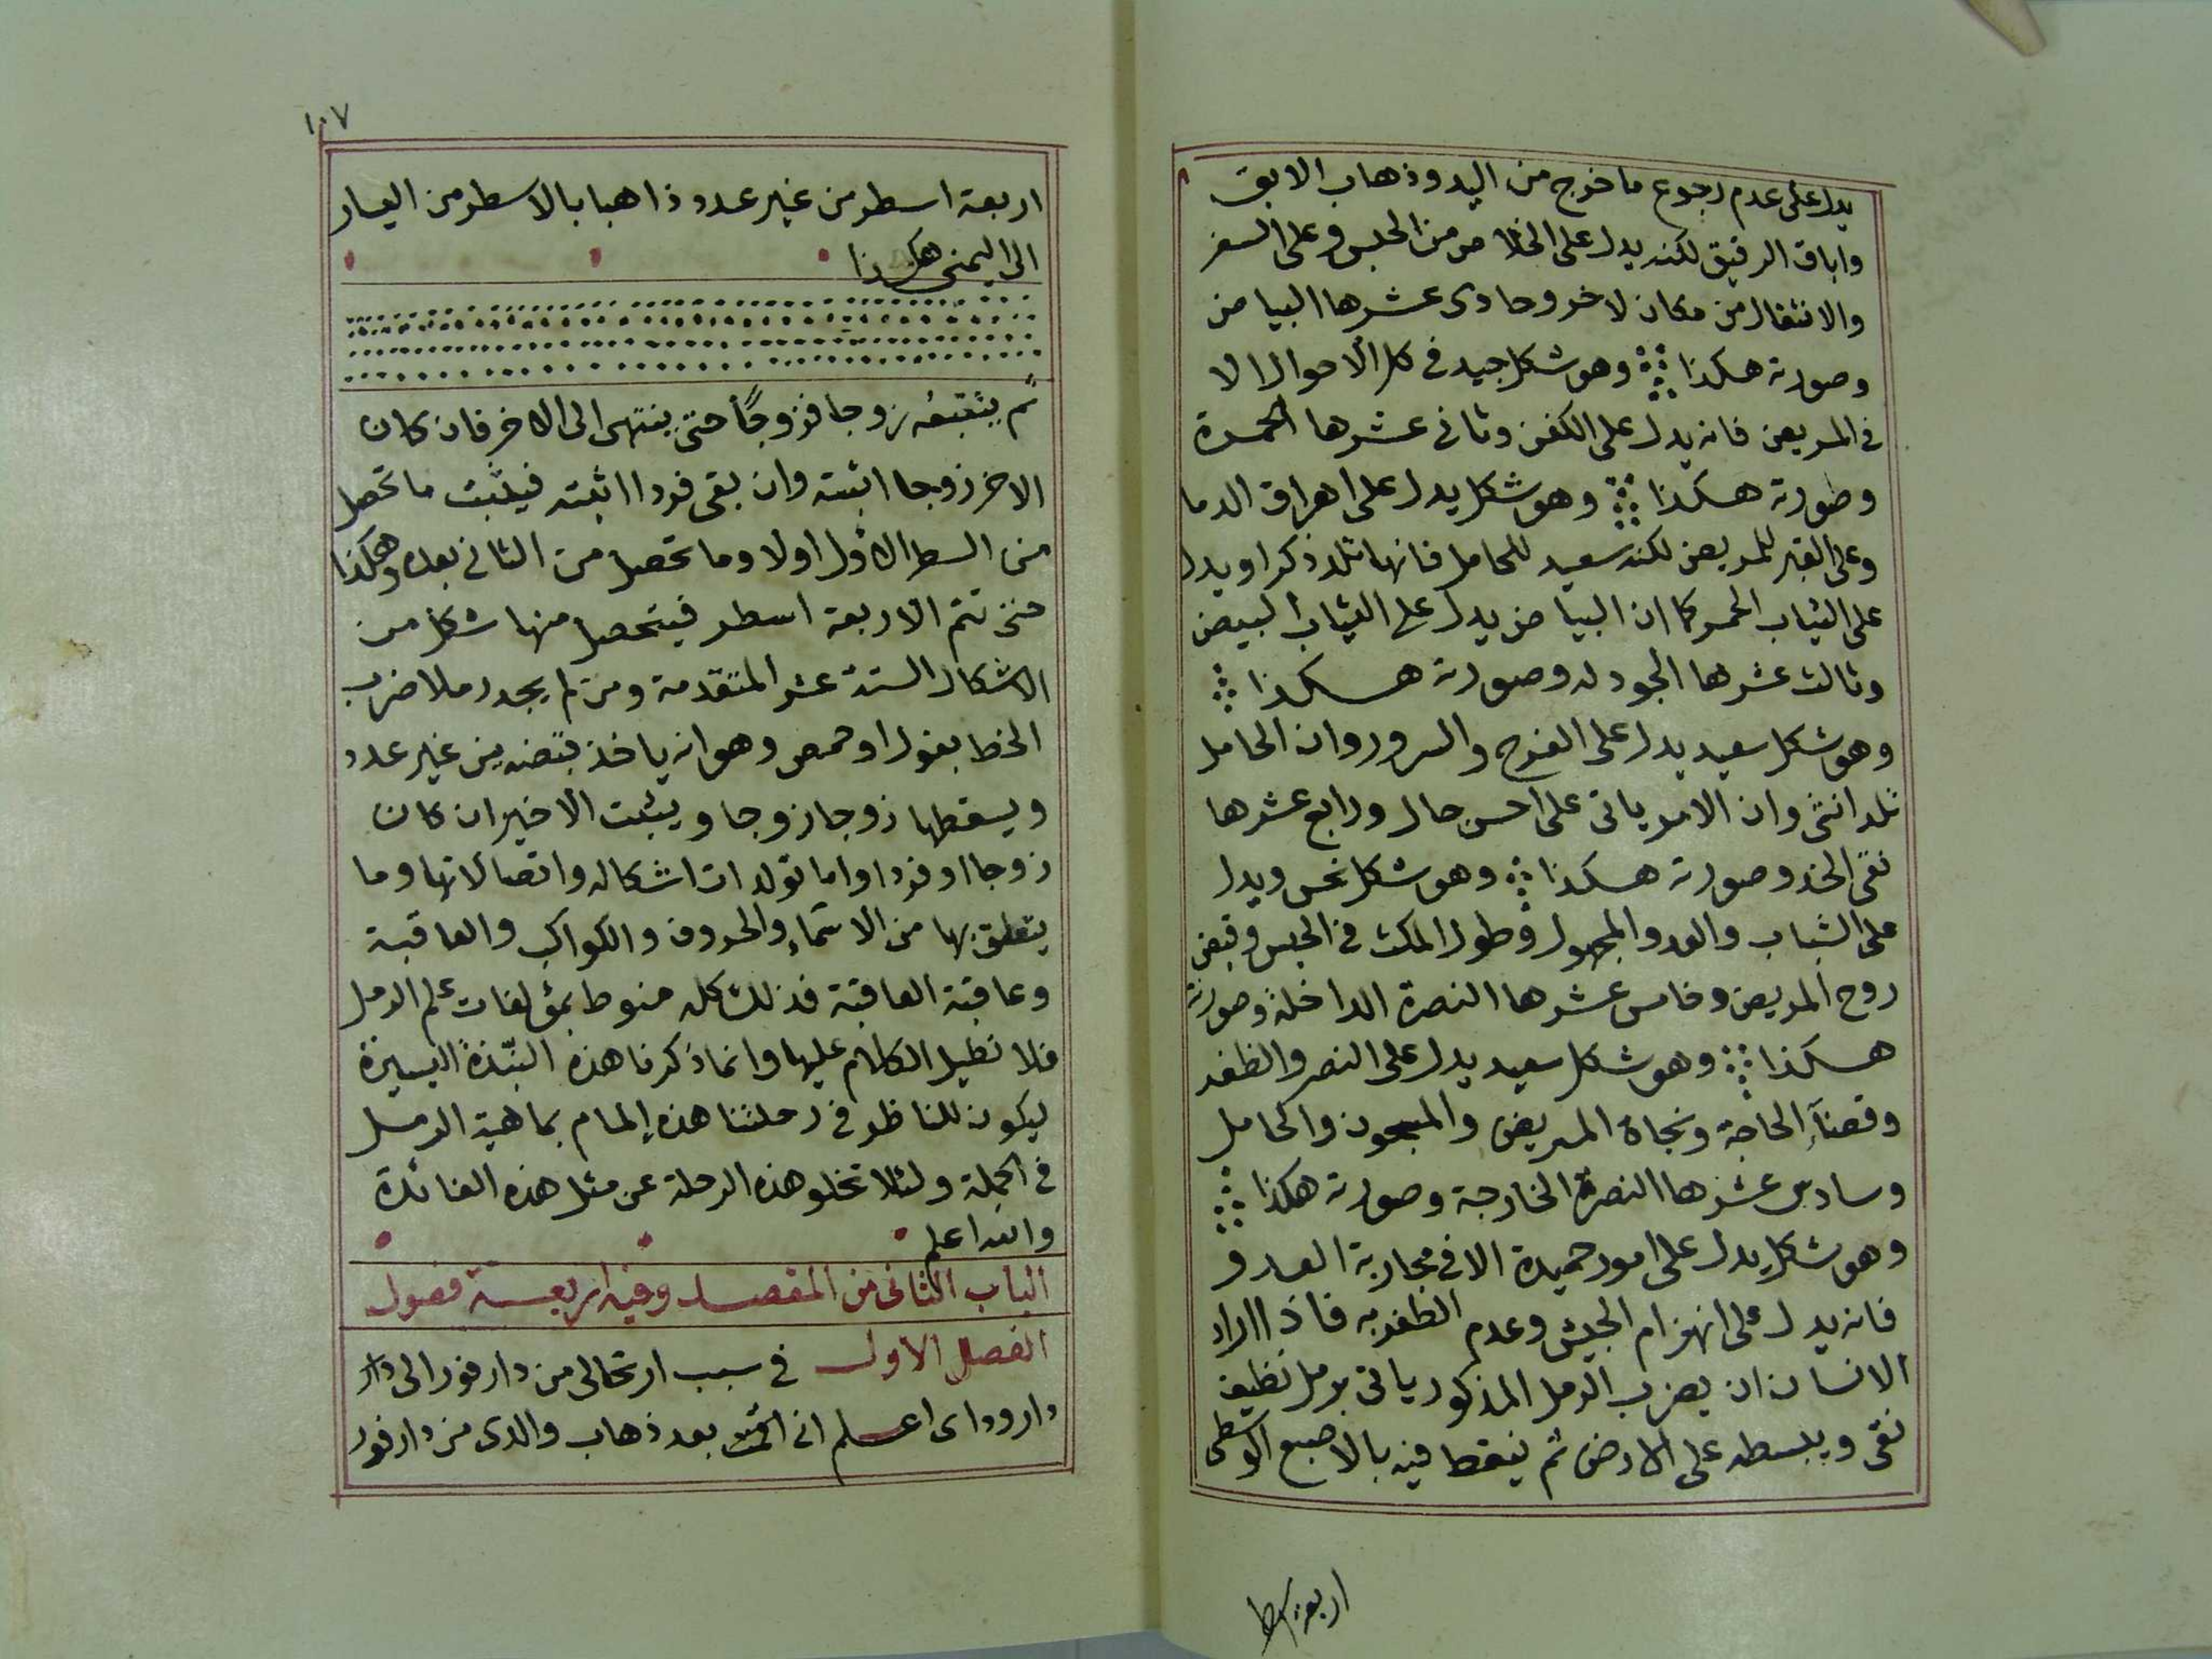 يدل على عدم رجوع ما خرج من اليد وذهاب الابق
واباق الرقيق لكنه يدل على الخلاص من الحبس وعلى السفر
والانتقال من مكان لاخر وحادى عشرها البياض
وصورته هكذا وهو شكل جيد فى كل الاحوال الا
فى المريض فانه يدل على الكفن وثانى عشرها الحمرة
وصورته هكذا وهو شكل يدل على اهراق الدما
وعلى القبر للمريض لكنه سعيد للحامل فانها تلد ذكرا ويدل
على الثياب الحمر كما ان البياض يدل على الثياب البيض
وثالث عشرها الجودله وصورته هكذا
وهو شكل سعيد يدل على الفرح والسرور وان الحامل
تلد انثى وان الامر ياتى على احسن حال ورابع عشرها
نقى الخد وصورته هكذا وهو شكل نحس ويدل
على الشباب والعدو المجهول وطول المكث فى الحبس وقبض
روح المريض وخامس عشرها النصرة الداخلة وصورته
هكذا وهو شكل سعيد يدل على النصر والظفر
وقضآء الحاجة ونجاة المريض والمسجون والحامل
وسادس عشرها النصرة الخارجة وصورته هكذا
وهو شكل يدل على امور حميدة الا فى محاربة العدو
فانه يدل على انهزام الجيش وعدم الظفر به فاذا اراد
الانسان ان يضرب الرمل المذكور ياتى برمل نظيف
نقى ويبسطه على الارض ثم ينقط فيه بالاصبع الوسطى
اربعة اسطر
١٠٧
اربعة اسطر من غير عدد ذاهبا بالاسطر من اليسار
الى اليمنى هكذا
ثم يتقبعه زوجا فزوجًا حتى ينتهى الى الاخر فان كان
الاخر زوجا اثبته وان بقى فردا اثبته فيثبت ما تحصل
من السطر الاول اولا وما تحصل من الثانى بعده وهكذا
حتى تتم الاربعة اسطر فيتحصل منها شكل من
الاشكال الستة عشر المتقدمة ومن لم يجد رملا ضرب
الخط بفول او حمص وهو انه ياخذ قبضه من غير عدد
ويسقطها زوجا زوجا ويثبت الاخير ان كان
زوجا او فردا واما تولدات اشكاله واتصالاتها وما
يتعلق بها من الاسمآء والحروف والكواكب والعاقبة
وعاقبة العاقبة فذلك كله منوط بمؤلفات علم الرمل
فلا نطيل الكلام عليها وانما ذكرنا هذه النبذة اليسيرة
ليكون للناظر فى رحلتنا هذه إلمام بماهية الرمل
فى الجملة ولئلا تخلو هذه الرحلة عن مثل هذه الفائدة
والله اعلم
الباب الثانى من المقصد وفيه اربعة فصول
الفصل الاول فى سبب ارتحالى من دارفور الى دار
دار وداى اعلم انى اقمت بعد ذهاب والدى من دارفور